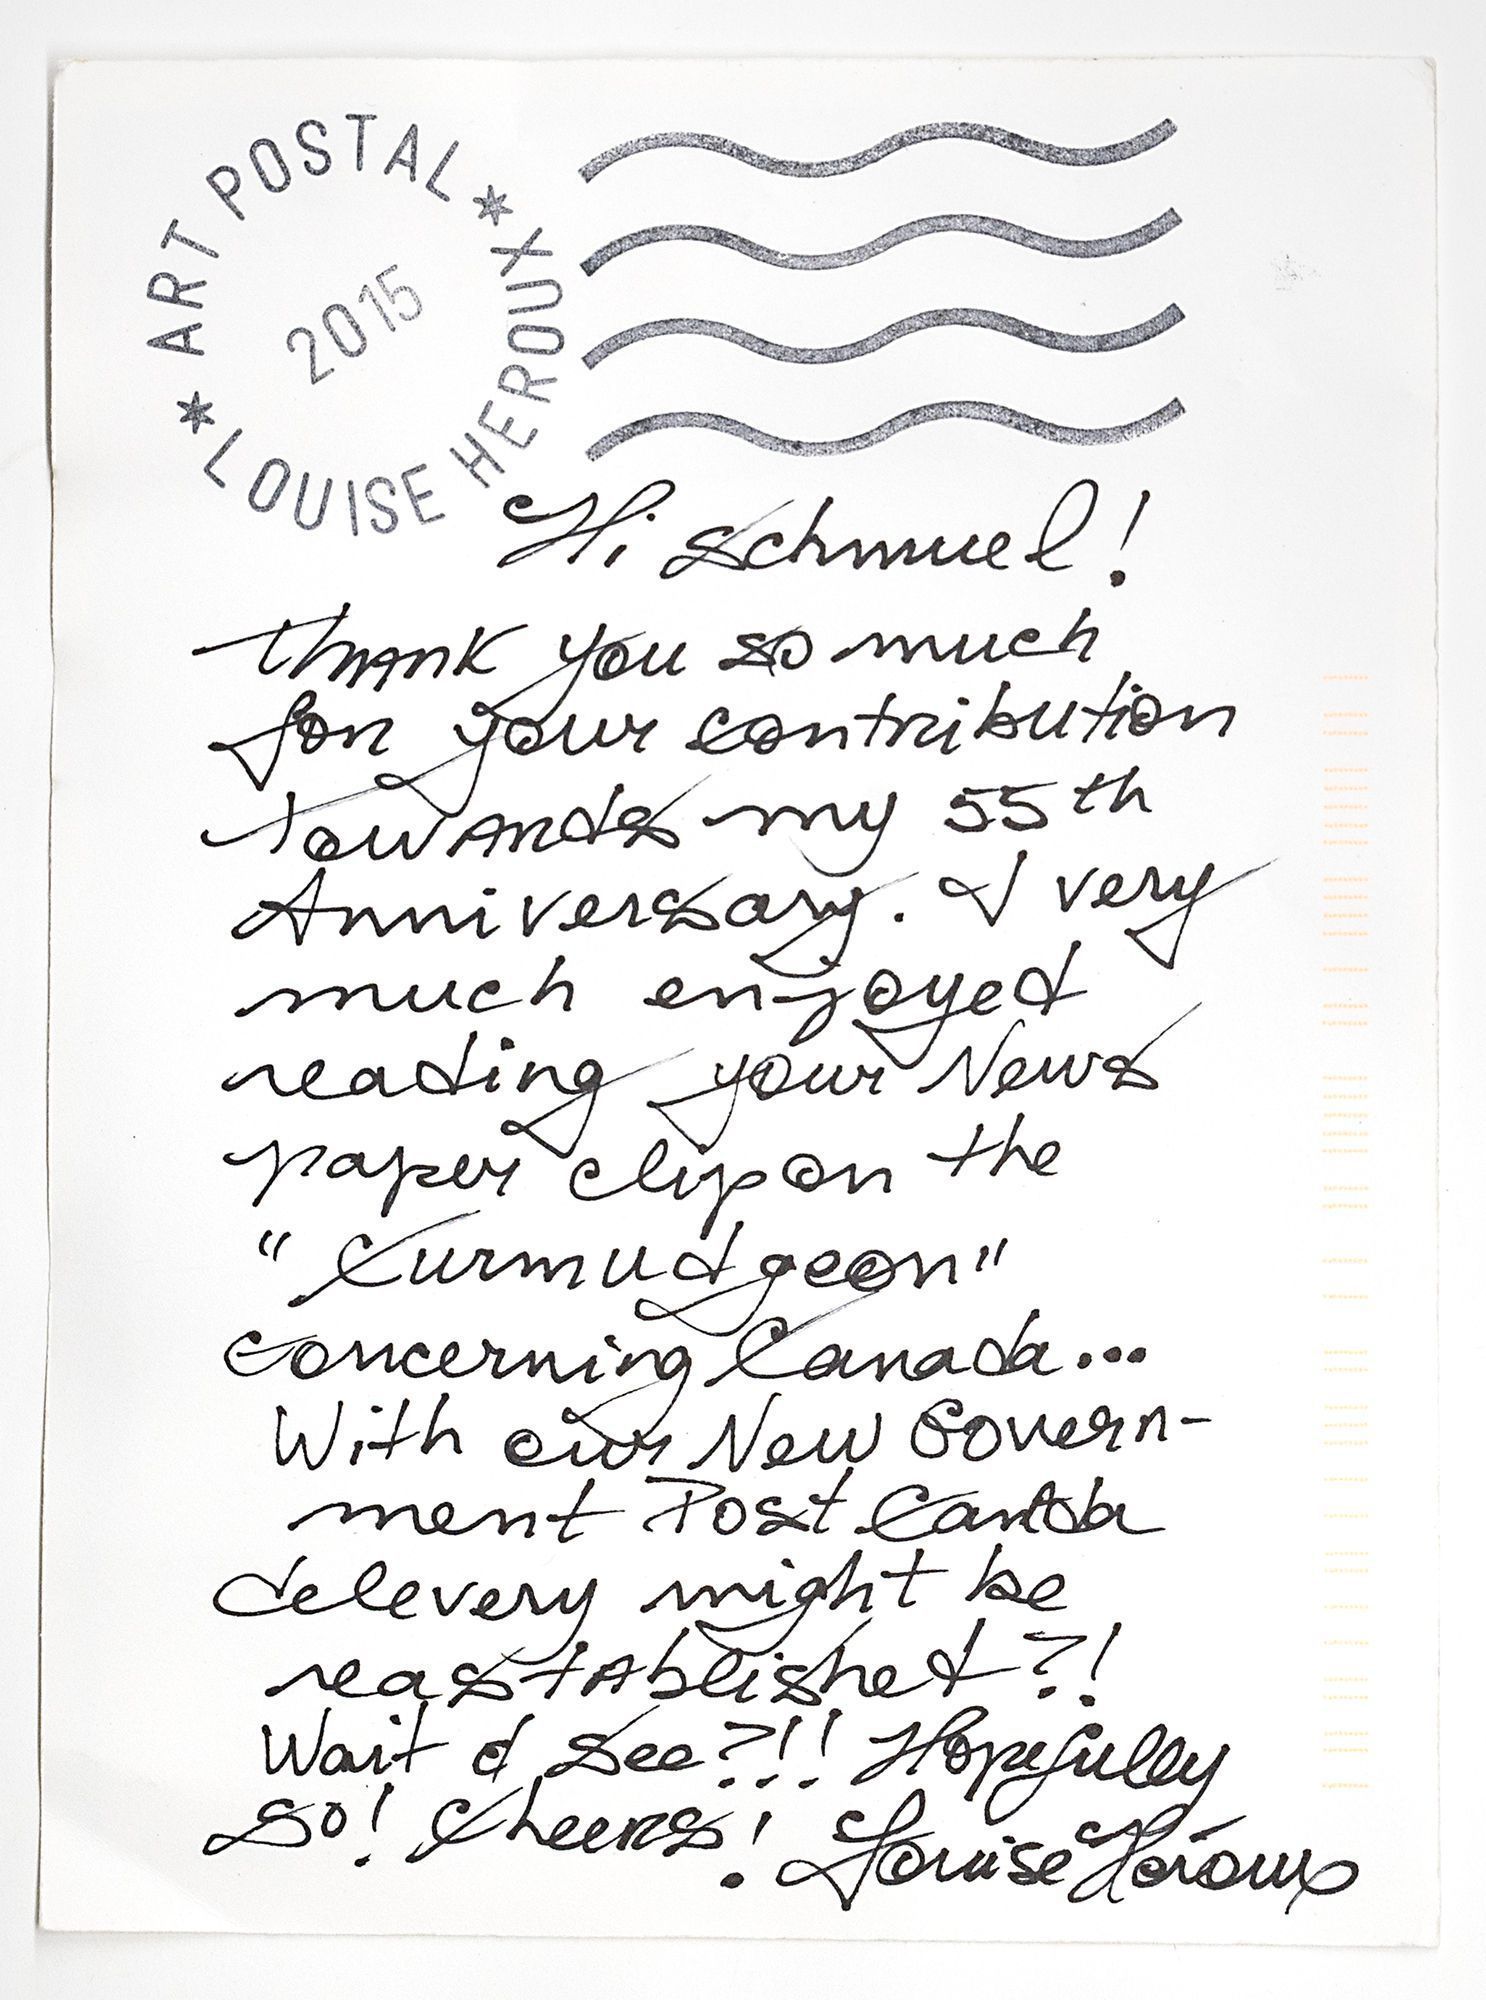 * ART POSTAL *
LOUISE HEROUX
2015
Hi Schmuel!
Thank you so much
for your contribution
towards my 55th
Anniversary. I very
much enjoyed
reading your News
paper clip on the
"Curmudgeon"
concerning Canada...
With our New Govern-
ment Post Canada
delevery might be
reastablished?!
Wait & see?!!! Hopefully
so! Cheers! Louise Héroux